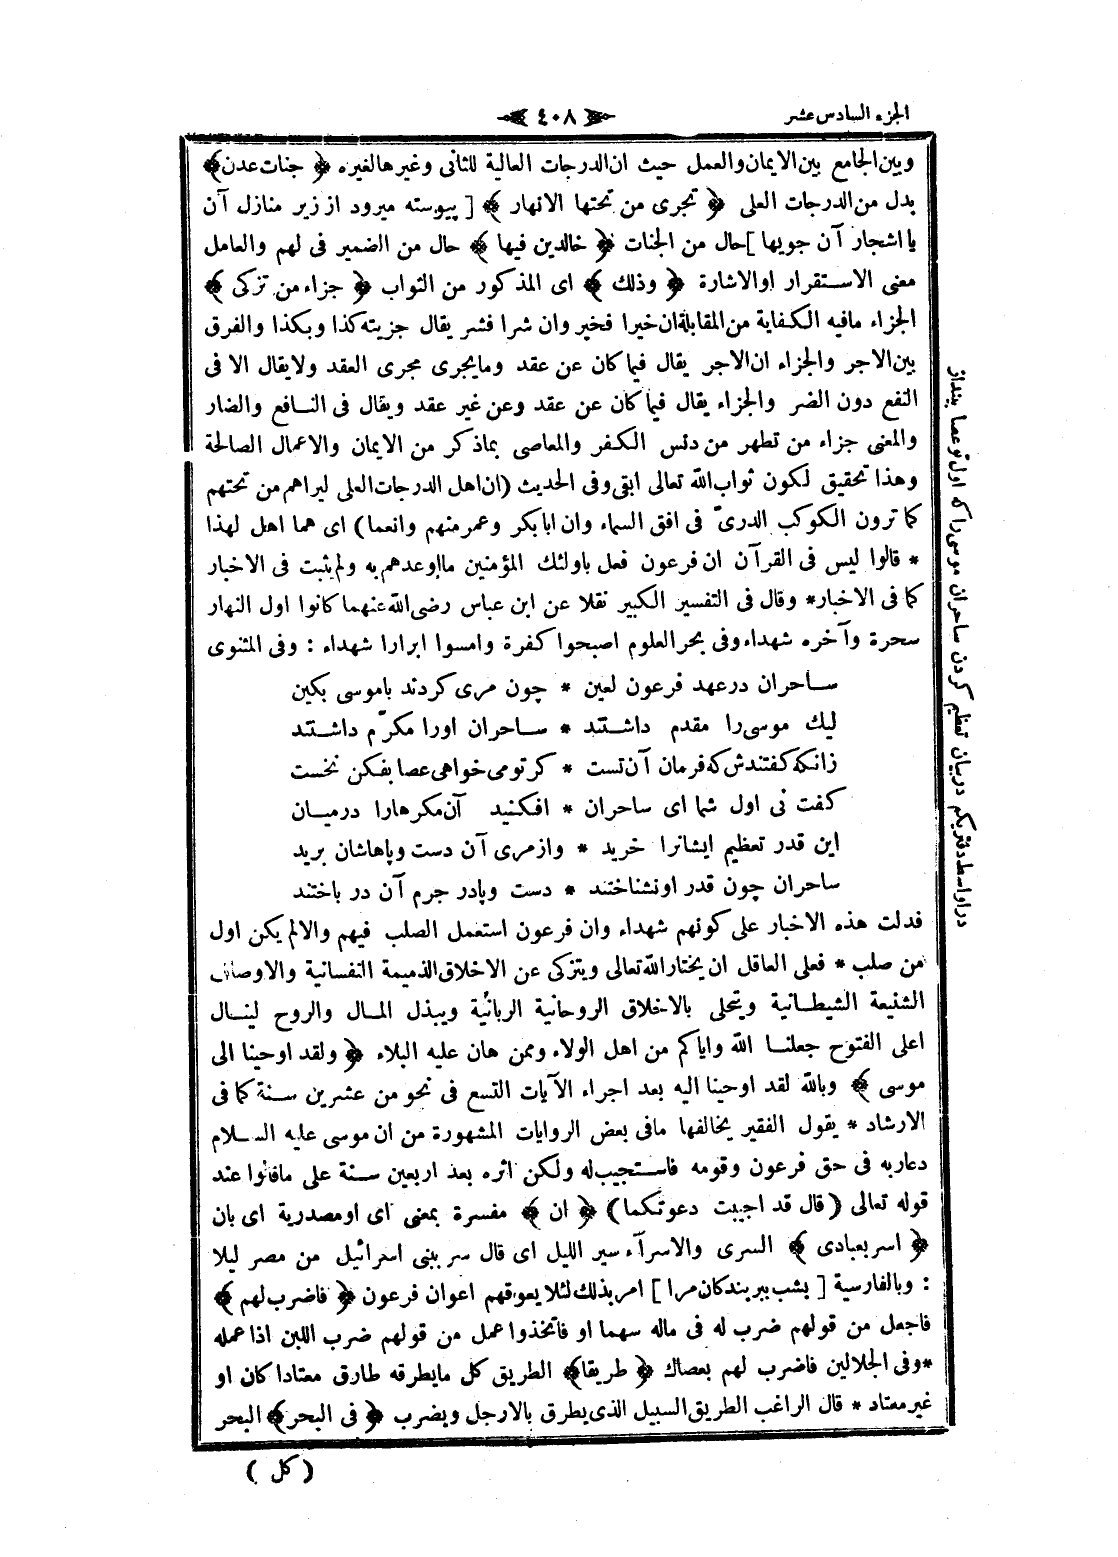 الجزء السادس عشر
٤٠٨
وبين الجامع بين الايمان والعمل حيث ان الدرجات العالية للثانى وغيرها لغيره ﴿ جنات عدن ﴾
بدل من الدرجات العلى ﴿ تجرى من تحتها الانهار ﴾ [ پيوسته ميرود از زير منازل آن
يا اشجار آن جويها ] حال من الجنات ﴿ خالدين فيها ﴾ حال من الضمير فى لهم والعامل
معنى الاستقرار او الاشارة ﴿ وذلك ﴾ اى المذكور من الثواب ﴿ جزاء من تزكى ﴾
الجزاء مافيه الكفاية من المقابلة ان خيرا فخير وان شرا فشر يقال جزيته كذا وبكذا والفرق
بين الاجر والجزاء ان الاجر يقال فيما كان عن عقد ومايجرى مجرى العقد ولايقال الا فى
النفع دون الضر والجزاء يقال فيما كان عن عقد وعن غير عقد ويقال فى النافع والضار
والمعنى جزاء من تطهر من دنس الكفر والمعاصى بماذكر من الايمان والاعمال الصالحة
وهذا تحقيق لكون ثواب الله تعالى ابقى وفى الحديث (ان اهل الدرجات العلى ليراهم من تحتهم
كما ترون الكوكب الدرىّ فى افق السماء وان ابابكر وعمر منهم وانعما) اى هما اهل لهذا
* قالوا ليس فى القرآن ان فرعون فعل باولئك المؤمنين مااوعدهم به ولم يثبت فى الاخبار
كما فى الاخبار * وقال فى التفسير الكبير نقلا عن ابن عباس رضى الله عنهما كانوا اول النهار
سحرة وآخره شهداء وفى بحر العلوم اصبحوا كفرة وامسوا ابرارا شهداء : وفى المثنوى
ساحران در عهد فرعون لعين * چون مرى كردند باموسى بكين
ليك موسى را مقدم داشتند * ساحران اورا مكرّم داشتند
زانكه كفتندش كه فرمان آن تست * كر تومى خواهى عصا بفكن نخست
كفت نى اول شما اى ساحران * افكنيد آن مكرهارا درميان
اين قدر تعظيم ايشانرا خريد * وازمرى آن دست وپاهاشان بريد
ساحران چون قدر اونشناختند * دست وپادر جرم آن در باختند
فدلت هذه الاخبار على كونهم شهداء وان فرعون استعمل الصلب فيهم والالم يكن اول
من صلب * فعلى العاقل ان يختار الله تعالى ويتزكى عن الاخلاق الذميمة النفسانية والاوصاف
الشنيعة الشيطانية ويتحلى بالاخلاق الروحانية الربانية ويبذل المال والروح لينال
اعلى الفتوح جعلنا الله واياكم من اهل الولاء وممن هان عليه البلاء ﴿ ولقد اوحينا الى
موسى ﴾ وبالله لقد اوحينا اليه بعد اجراء الآيات التسع فى نحو من عشرين سنة كما فى
الارشاد * يقول الفقير يخالفها مافى بعض الروايات المشهورة من ان موسى عليه السلام
دعاربه فى حق فرعون وقومه فاستجيب له ولكن اثره بعد اربعين سنة على ماقالوا عند
قوله تعالى (قال قد اجيبت دعوتكما) ﴿ ان ﴾ مفسرة بمعنى اى اومصدرية اى بان
﴿ اسر بعبادى ﴾ السرى والاسرآء سير الليل اى قال سر ببنى اسرائيل من مصر ليلا
: وبالفارسية [ بشب ببر بندكان مرا ] امر بذلك لئلا يعوقهم اعوان فرعون ﴿ فاضرب لهم ﴾
فاجعل من قولهم ضرب له فى ماله سهما او فاتخذوا عمل من قولهم ضرب اللبن اذا عمله
*وفى الجلالين فاضرب لهم بعصاك ﴿ طريقا ﴾ الطريق كل مايطرقه طارق معتادا كان او
غير معتاد * قال الراغب الطريق السبيل الذى يطرق بالارجل ويضرب ﴿ فى البحر ﴾ البحر
( كل )
در اواسط دفتر يكم در بيان تعظيم كردن ساحران موسى را كه اول تو عصا بينداز